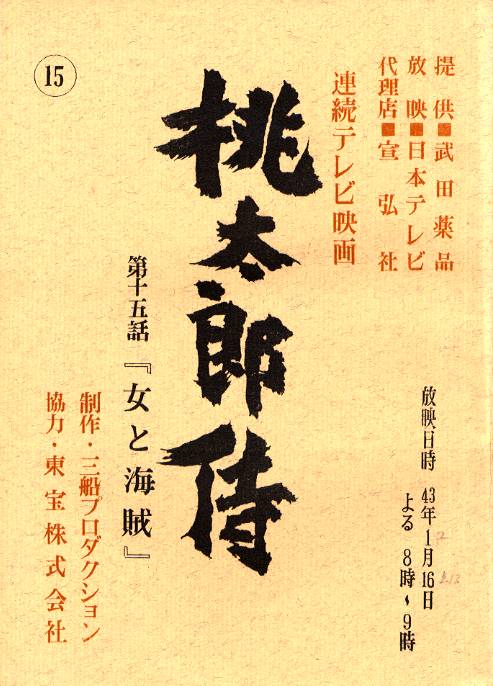 提供■武田薬品
放映■日本テレビ
代理店■宣弘社
連続テレビ映画
桃太郎侍
第十五話『女と海賊』
制作・三船プロダクション
協力・東宝株式会社
放映日時 43年1月16日
よる 8時〜9時
15